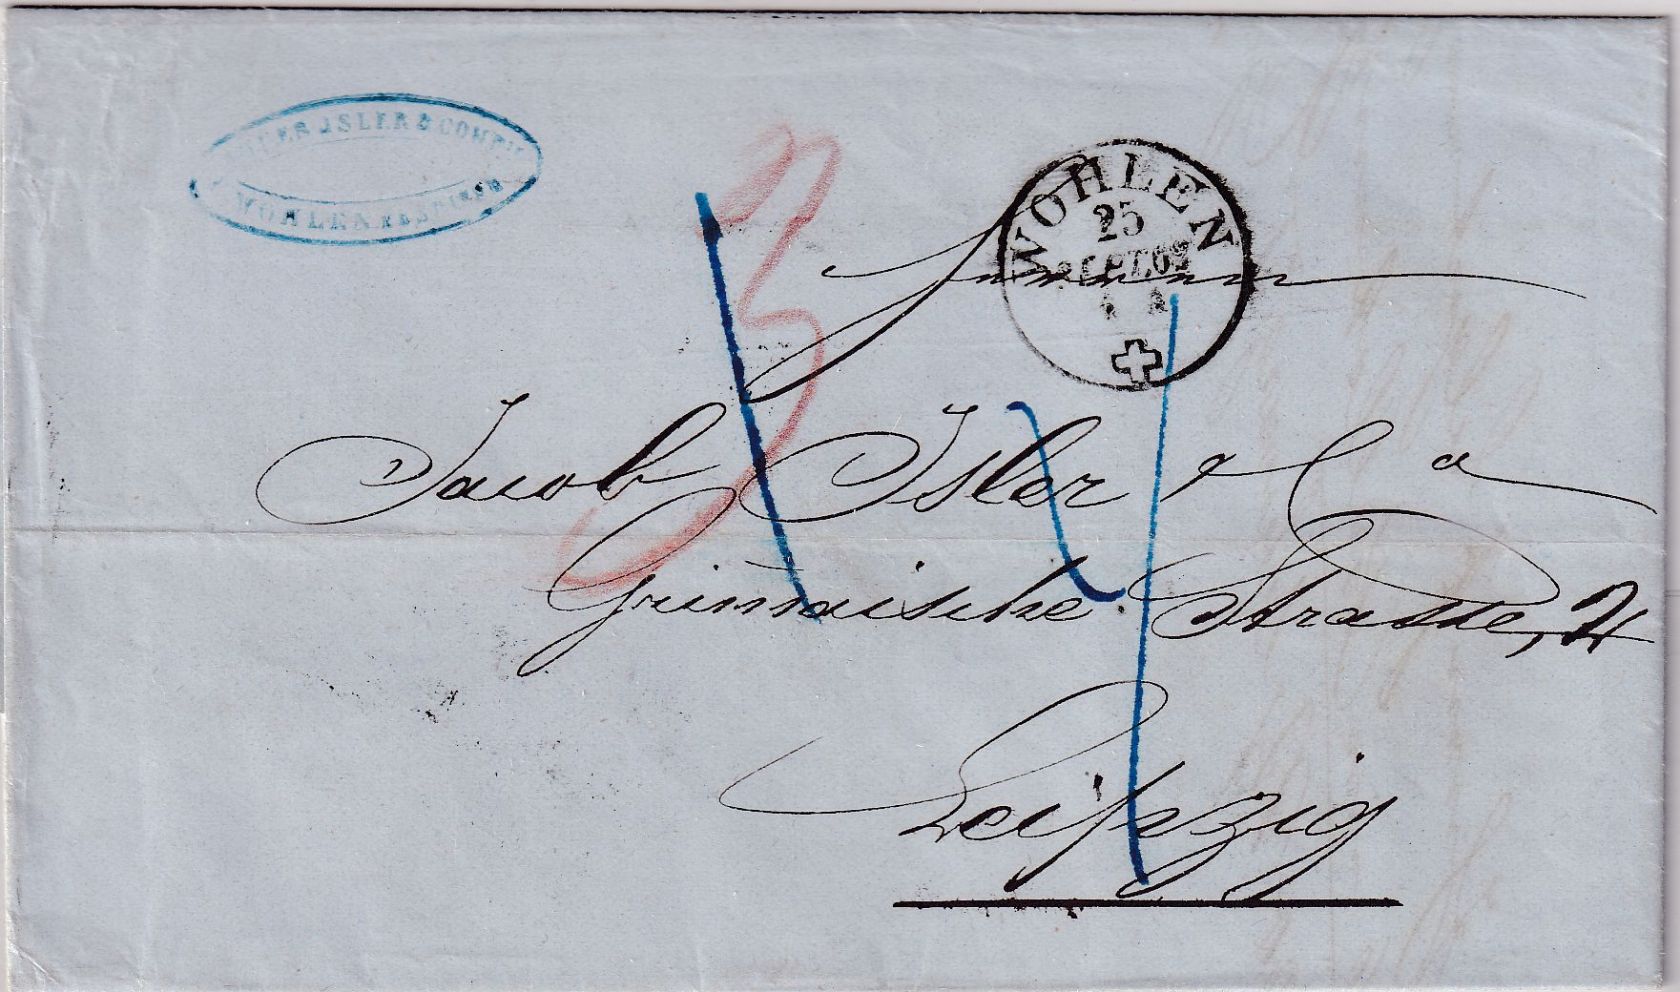 ISLER & COMP.
WOHLEN
WOHLEN
25
SEPT. 6
3
Jacob Isler & Co
Grimmaische Strasse, 24
Leipzig